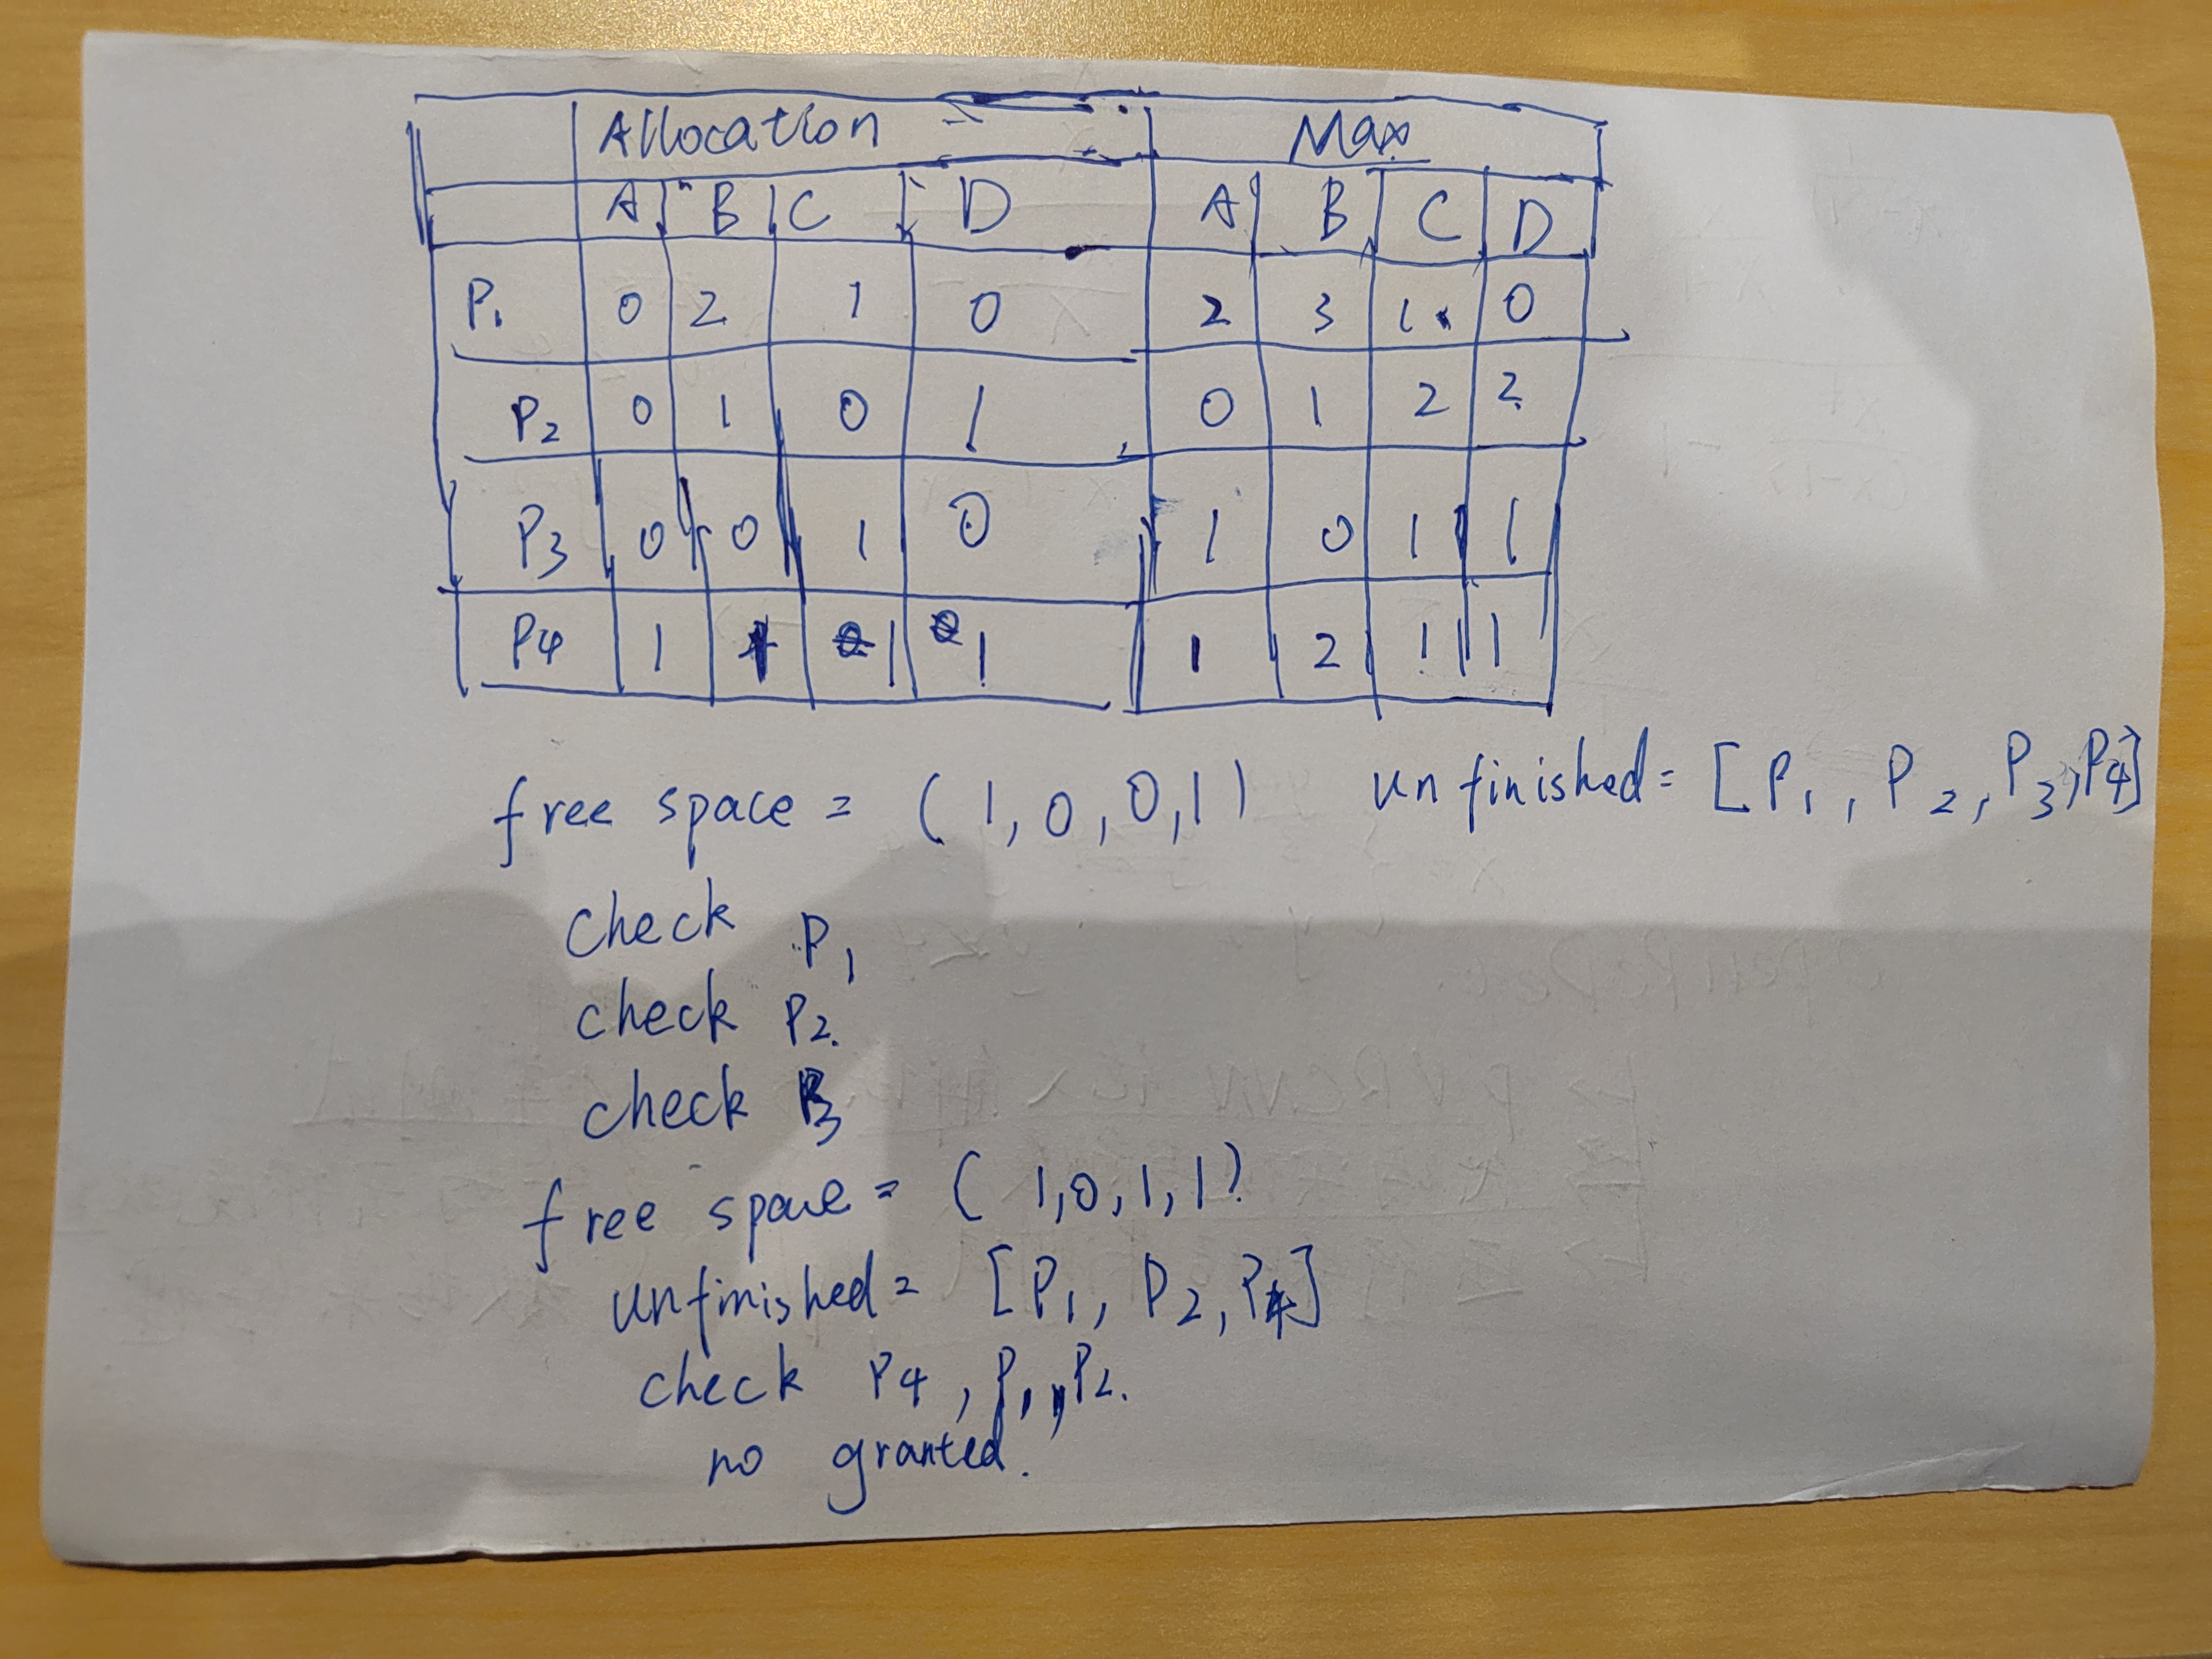 Allocation Max
A B C D A B C D
P1 0 2 1 0 2 3 1 0
P2 0 1 0 1 0 1 2 2
P3 0 0 1 0 1 0 1 1
P4 1 1 1 1 2 1 1
free space = (1, 0, 0, 1) unfinished = [P1, P2, P3, P4]
check P1
check P2.
check P3
free space = (1, 0, 1, 1)
unfinished = [P1, P2, P4]
check P4, P1, P2.
no granted.